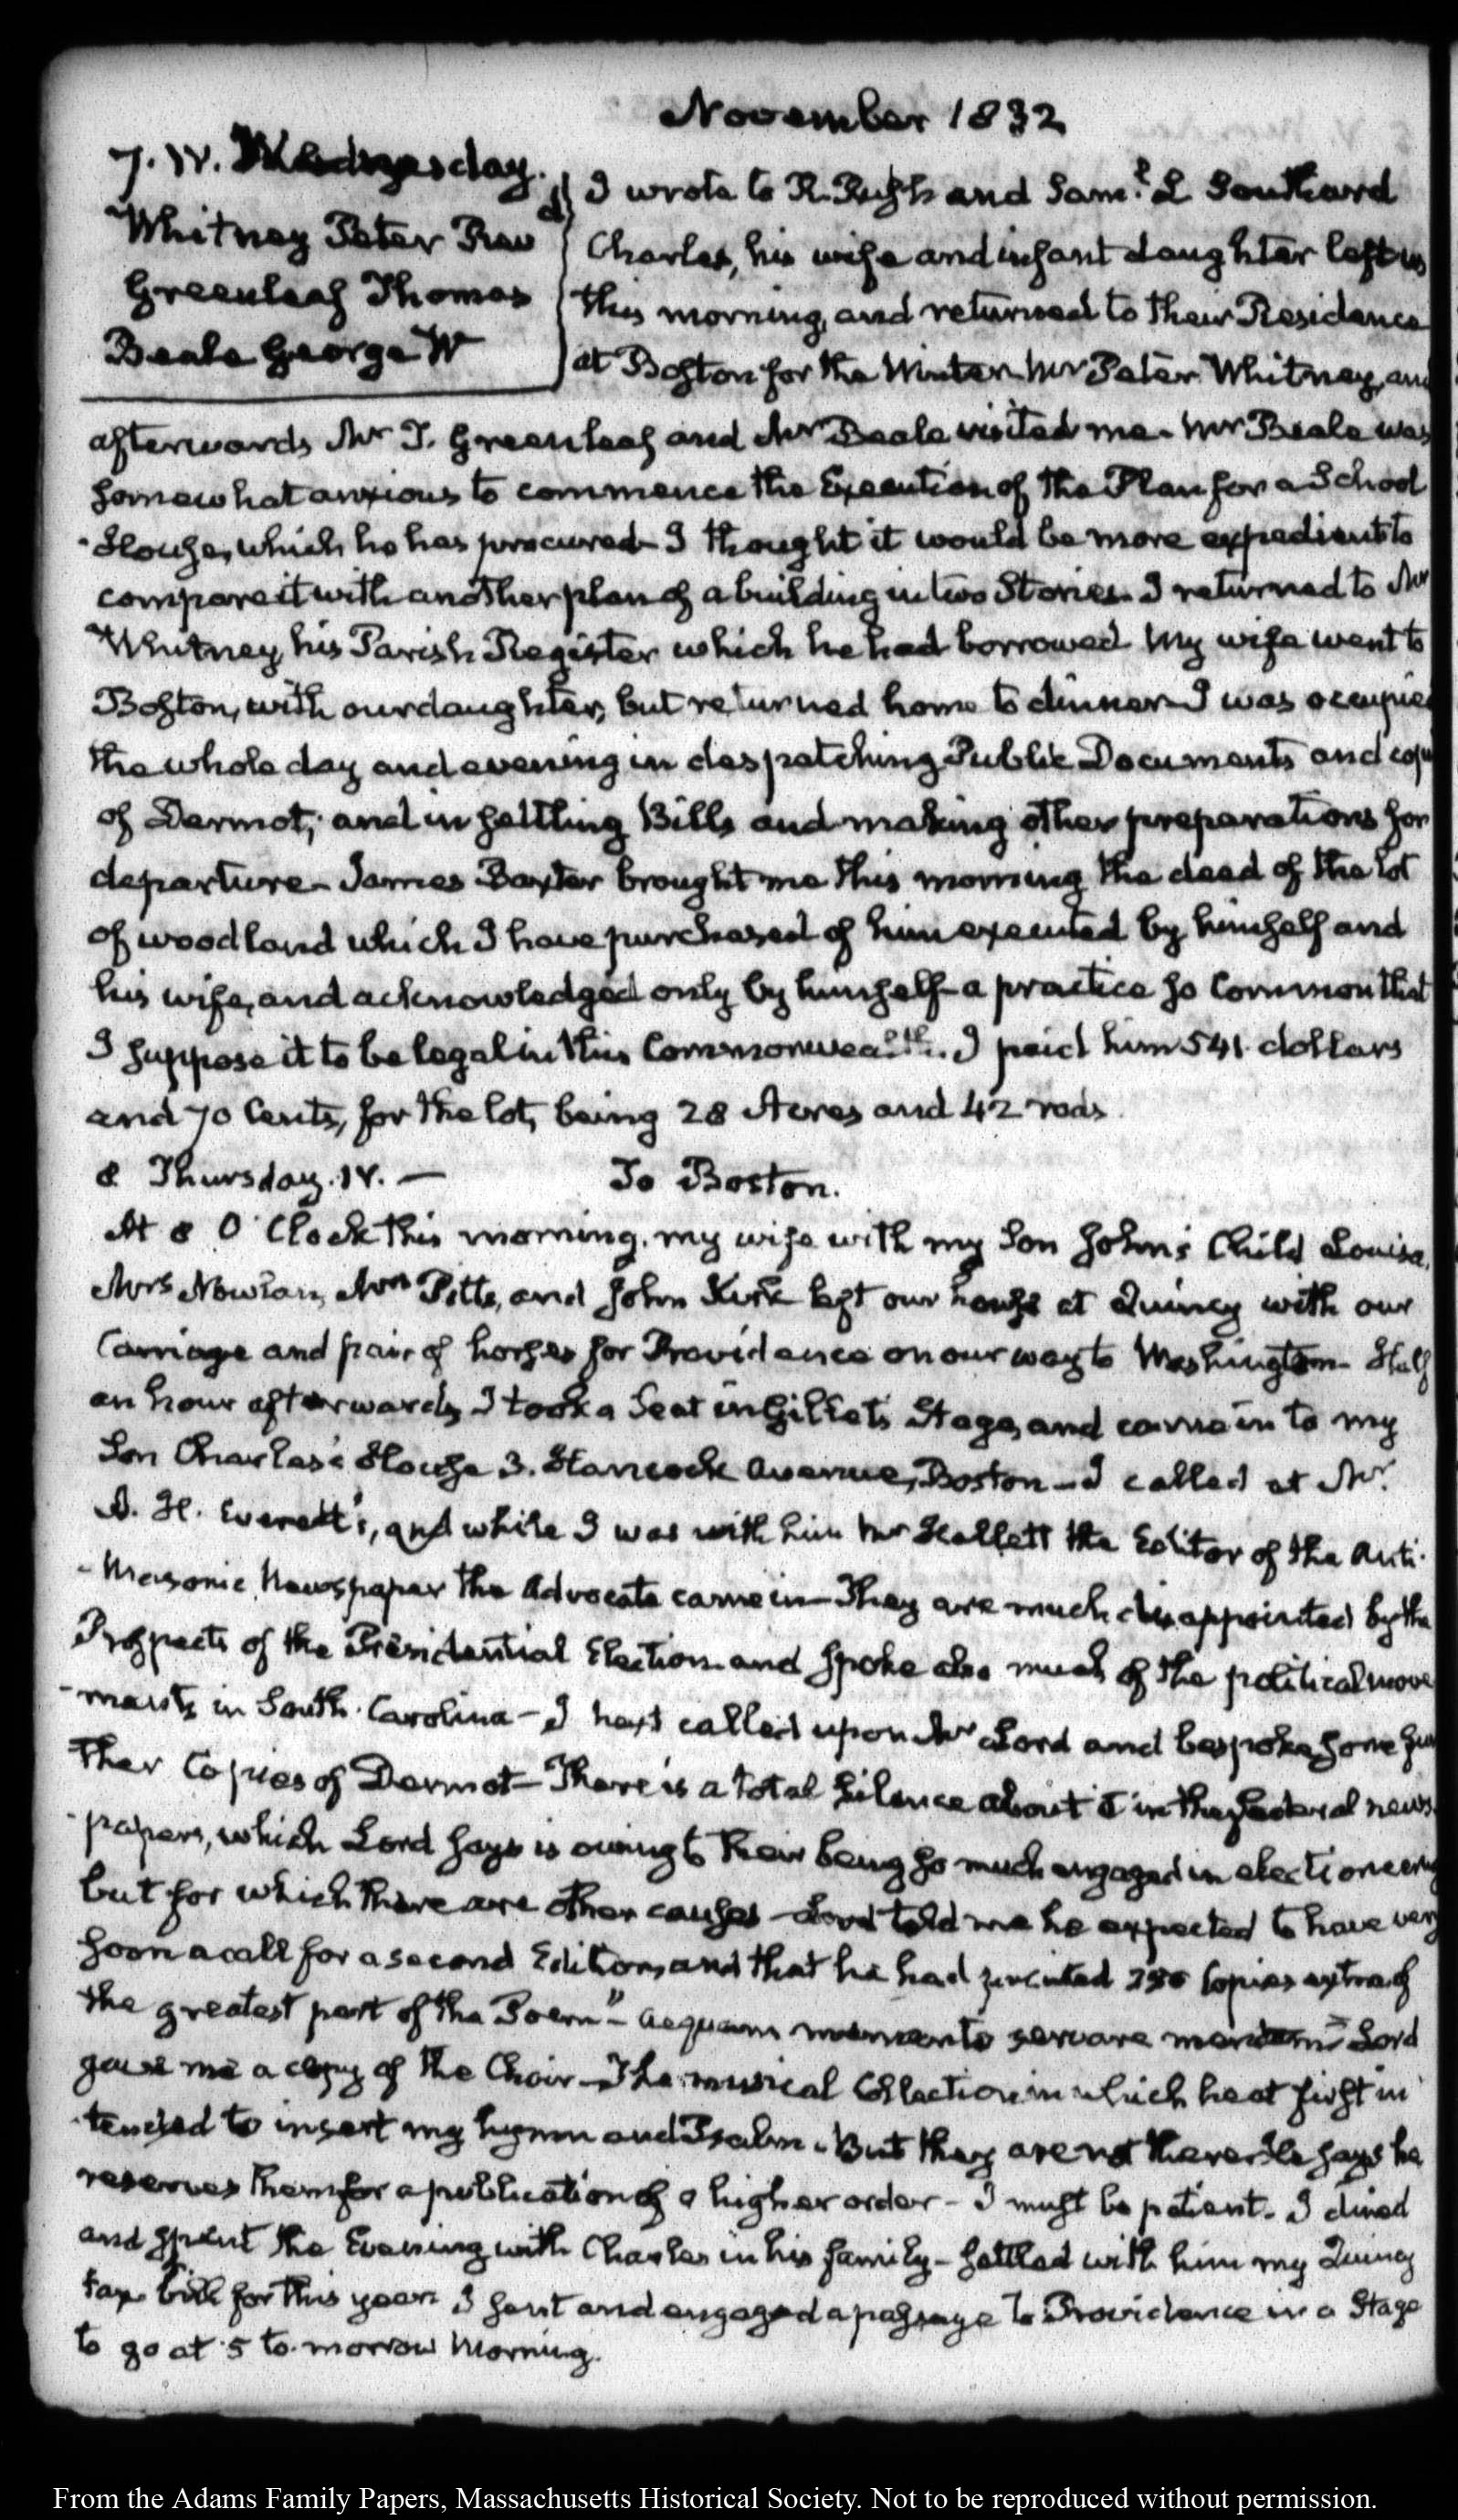 November 1832
7. IV. Wednesday.
Whitney Peter Revd
Greenleaf Thomas
Beale George W
I wrote to R. Rush and Saml. L Southard
Charles, his wife and infant daughter left us
this morning, and returned to their Residence
at Boston for the Winter. Mr Peter Whitney, and
afterwards Mr T. Greenleaf and Mr Beale visited me. Mr Beale was
somewhat anxious to commence the Execution of the Plan for a School
-House, which he has procured I thought it would be more expedient to
compare it with another plan of a building in two Stories. I returned to Mr
Whitney his Parish Register which he had borrowed My wife went to
Boston, with our daughter, but returned home to dinner I was occupied
the whole day and evening in despatching Public Documents and
of Dermot; and in settling Bills and making other preparations for
departure. James Baxter brought me this morning the deed of the lot
of woodland which I have purchased of him executed by himself and
his wife, and acknowledged only by himself a practice so common that
I suppose it to be legal in this Commonwealth. I paid him 541 dollars
and 70 Cents, for the lot, being 28 Acres and 42 rods
8 Thursday. IV. — To Boston.
At 8 O'Clock this morning, my wife with my Son John's Child Louisa,
Mrs Nowlan, Mrs Pitts, and John Kirk left our house at Quincy with our
Carriage and pair of horses for Providence on our way to Washington. Half
an hour afterwards, I took a Seat in Gillet's Stage, and came in to my
Son Charles's House 3. Hancock Avenue, Boston — I called at Mr.
A. H. Everett's, and while I was with him Mr Hallett the Editor of the Anti-
-Masonic Newspaper the Advocate came in — They are much disappointed by the
Prospects of the Presidential Election and spoke also much of the political move
-ments in South-Carolina — I next called upon Mr Lord and bespoke some fur
ther Copies of Dermot — There is a total silence about it in the federal news-
-papers, which Lord says is owing to their being so much engaged in electioneering
but for which there are other causes — Lord told me he expected to have very
soon a call for a second Edition, and that he had printed 250 Copies extra of
the greatest part of the Poem "— Aequam memento servare mentem" Lord
gave me a copy of the Choir — The musical Collection in which he at first in
-tended to insert my hymn and Psalm. But they are not there. He says he
reserves them for a publication of a higher order — I must be patient. I dined
and spent the Evening with Charles in his family — settled with him my Quincy
tax bill for this year. I sent and engaged a passage to Providence in a Stage
to go at 5 to-morrow Morning.
From the Adams Family Papers, Massachusetts Historical Society. Not to be reproduced without permission.